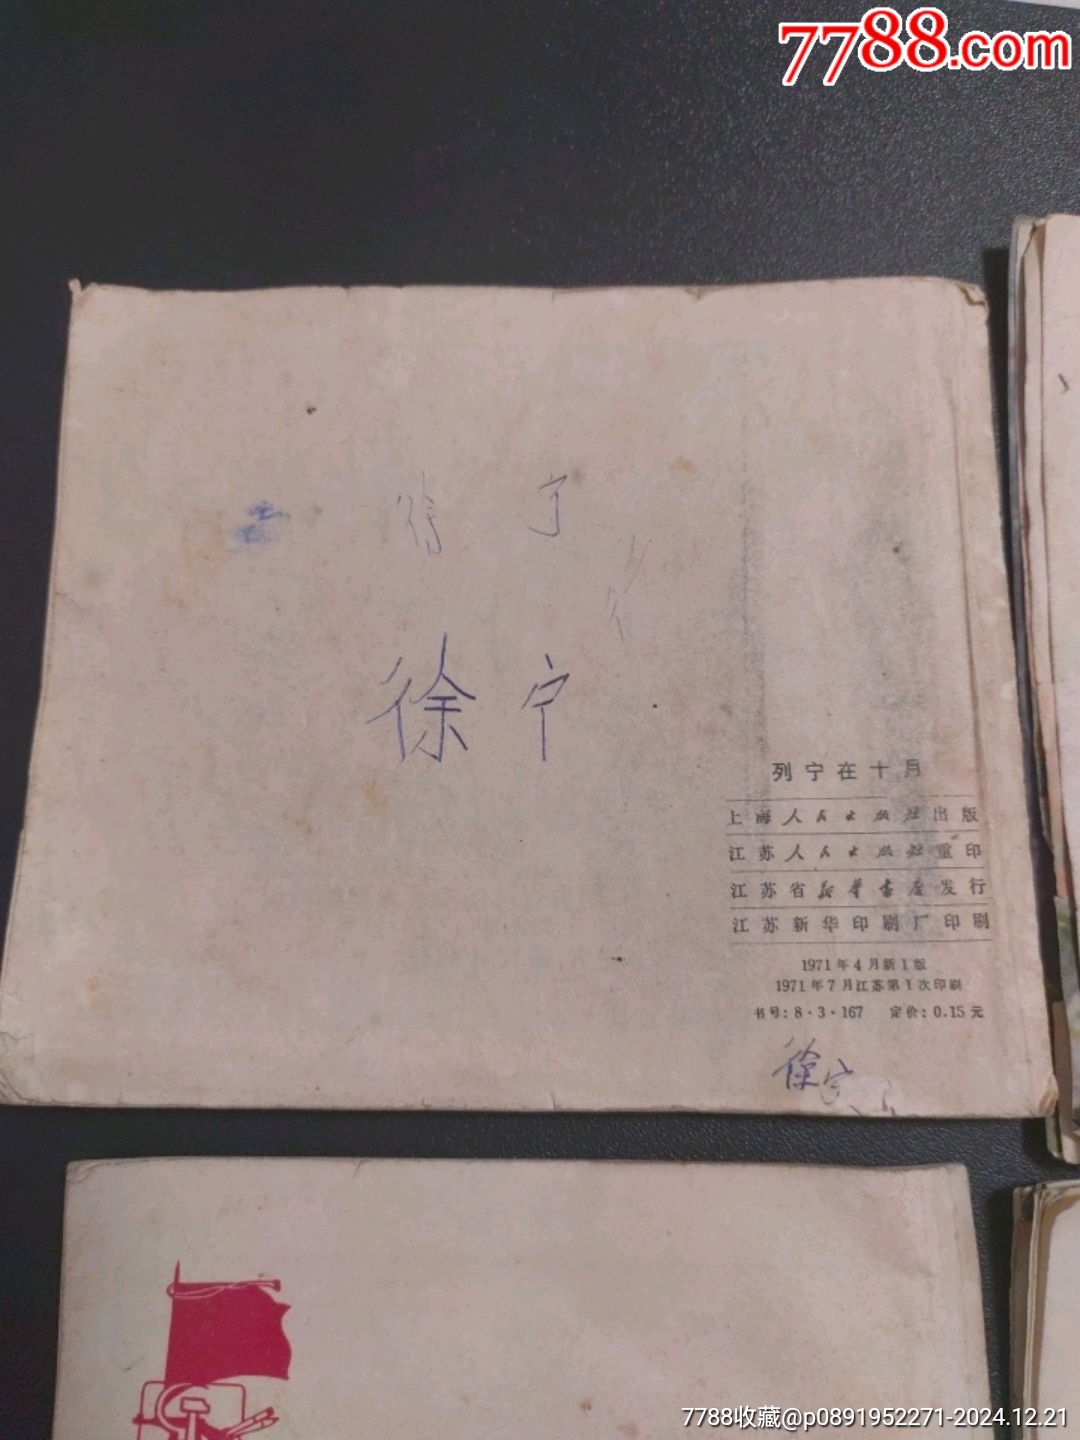 7788.com
徐宁
徐宁
列宁在十月
上海人民出版社出版
江苏人民出版社重印
江苏省新华书店发行
江苏新华印刷厂印刷
1971年4月新1版
1971年7月江苏第1次印刷
书号：8·3·167 定价：0.15元
徐宁
7788收藏@p0891952271-2024.12.21